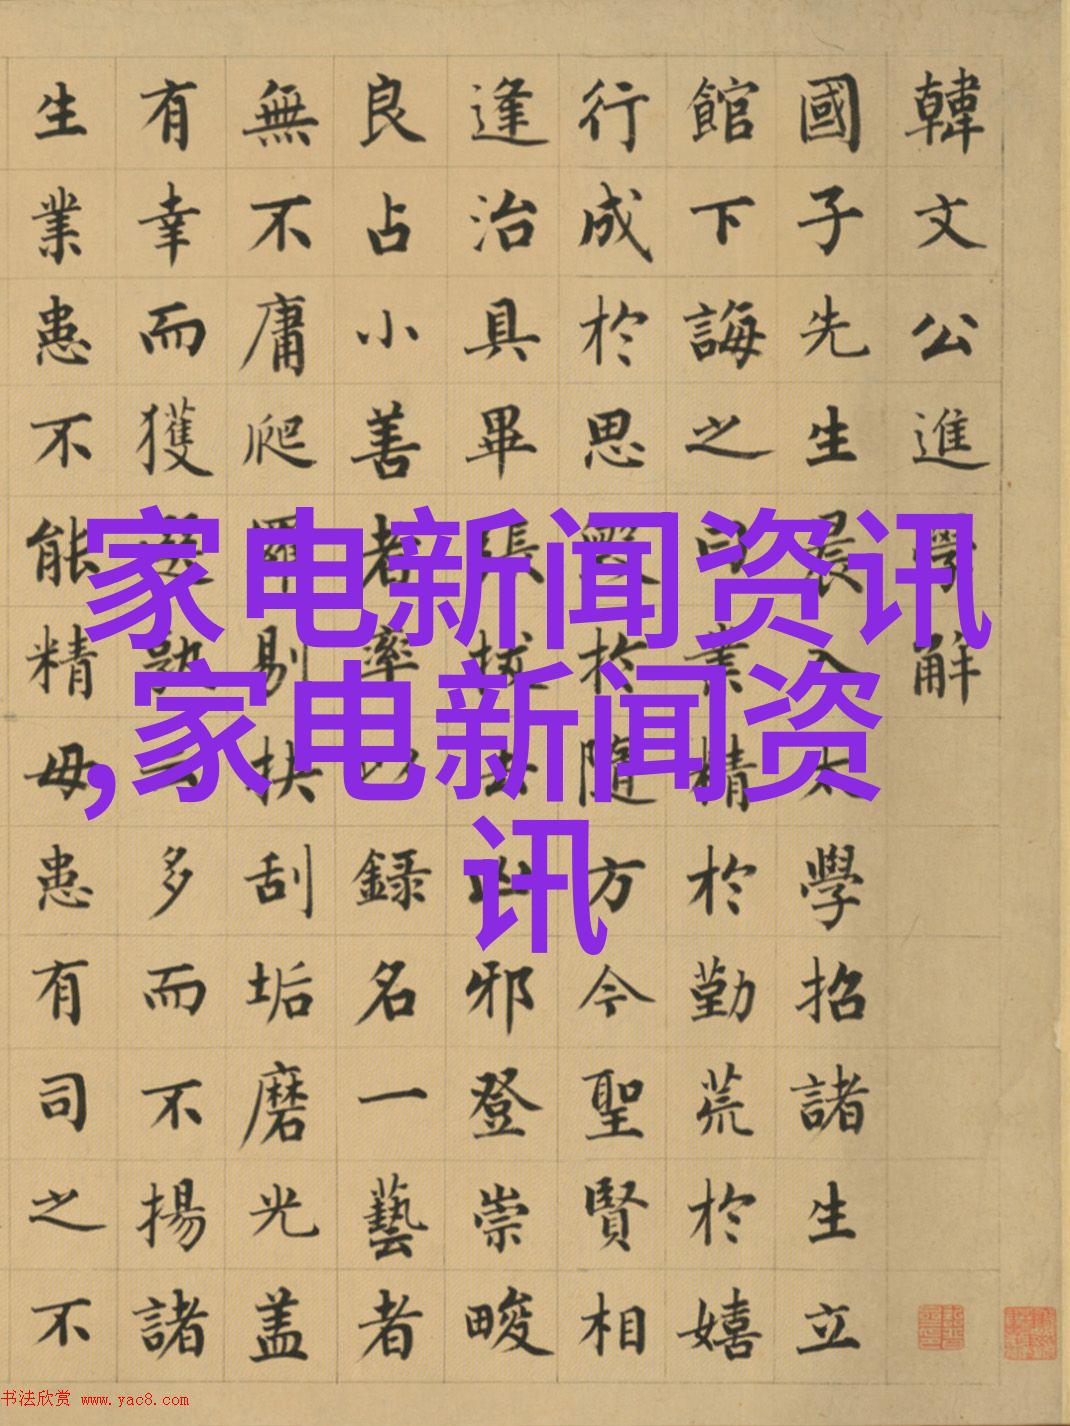 韓文公進學解
國子先生晨入太學招諸生立
館下誨之曰業精於勤荒於嬉
行成於思毀於隨方今聖賢相
逢治具畢張拔去凶邪登崇畯
良占小善者率以錄名一藝者
無不庸爬羅剔抉刮垢磨光盖
有幸而獲選孰云多而不揚諸
生業患不能精母患有司之不
家电新闻资讯
,家电新闻资
讯
书法欣赏 www.yac8.com